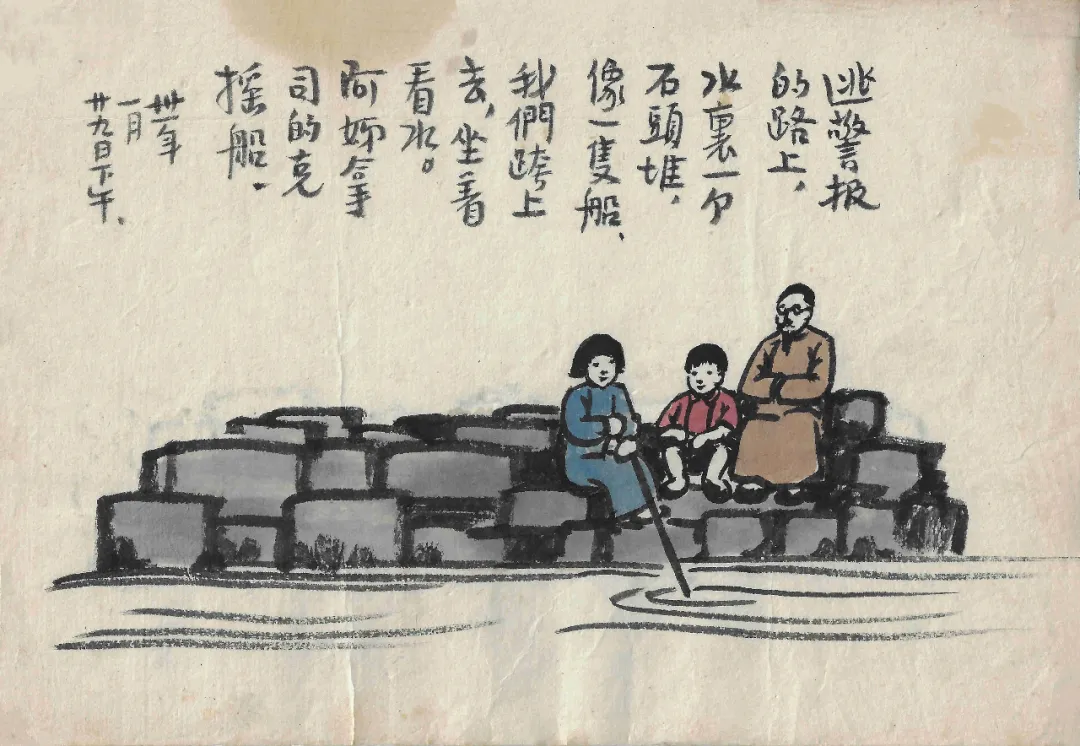 逃警报
的路上，
水裏一个
石頭堆，
像一隻船、
我們跨上
去，坐着
看水。
阿姊拿
司的克
摇船、
卅一年
一月
廿九日下午、